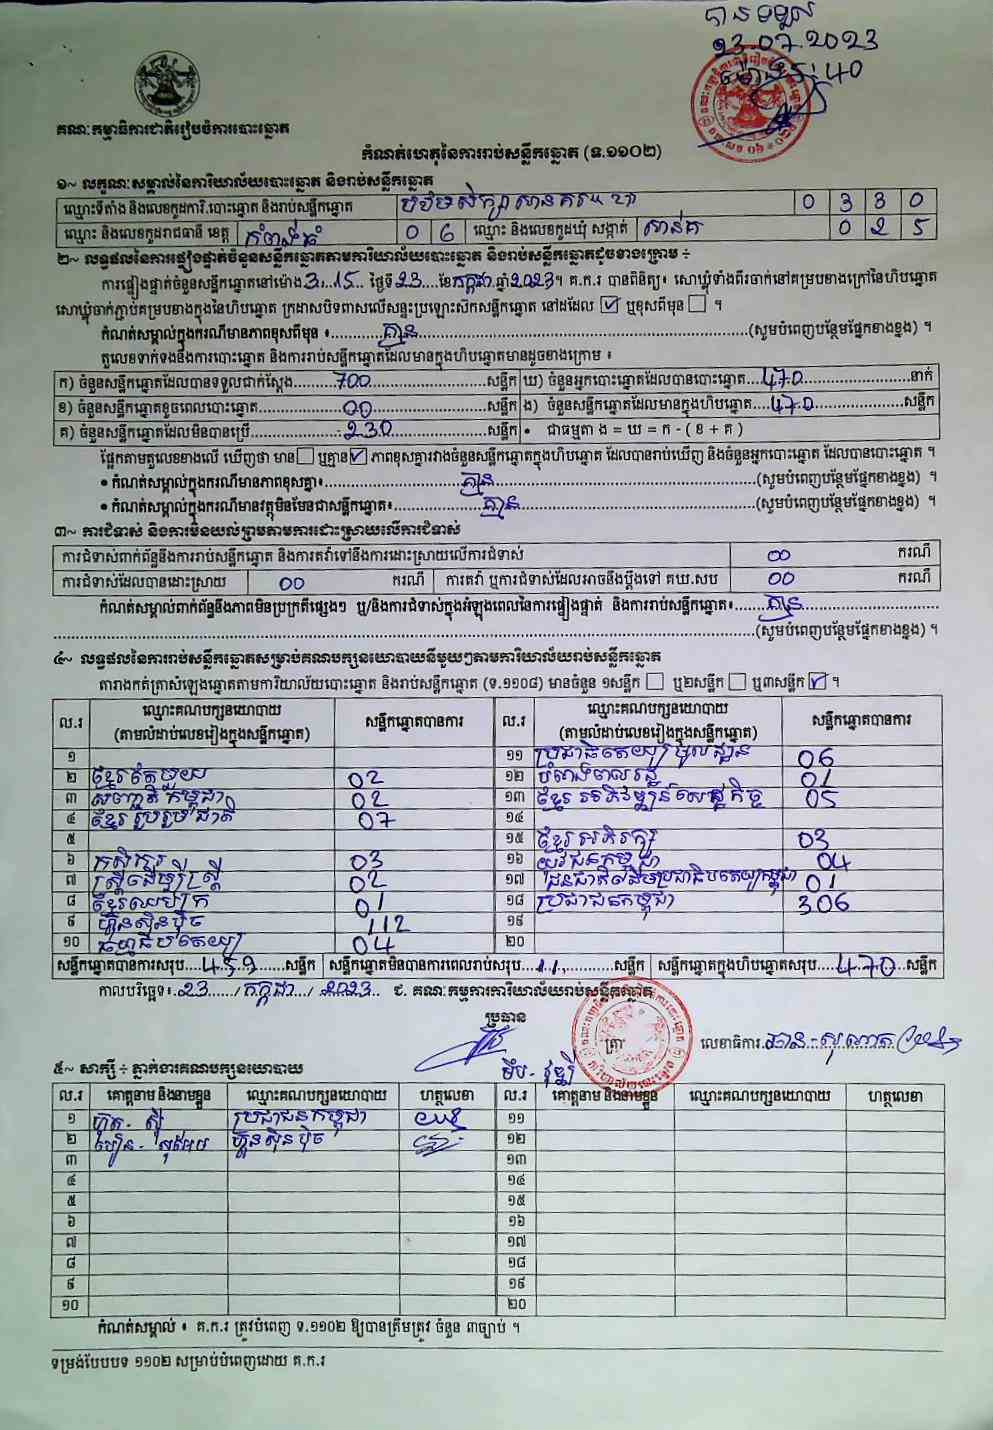 បានទទួល
23.07.2023
គណៈកម្មាធិការជាតិរៀបចំការបោះឆ្នោត
កំណត់ហេតុនៃការរាប់សន្លឹកឆ្នោត (ទ.១១០២)
១~ លក្ខណៈសម្គាល់នៃការិយាល័យបោះឆ្នោត និងរាប់សន្លឹកឆ្នោត
ឈ្មោះទីតាំង និងលេខកូដការិ.បោះឆ្នោត និងរាប់សន្លឹកឆ្នោត 0 3 3 0
ឈ្មោះ និងលេខកូដរាជធានី ខេត្ត កំពង់ធំ 0 6 ឈ្មោះ និងលេខកូដឃុំ សង្កាត់ 0 2 5
២~ លទ្ធផលនៃការផ្ទៀងផ្ទាត់ចំនួនសន្លឹកឆ្នោតតាមការិយាល័យបោះឆ្នោត និងរាប់សន្លឹកឆ្នោតដូចខាងក្រោម ÷
ការផ្ទៀងផ្ទាត់ចំនួនសន្លឹកឆ្នោតនៅម៉ោង 3.15 ថ្ងៃទី 23 ខែ កក្កដា ឆ្នាំ 2023។ គ.ក.រ បានពិនិត្យ៖ សោឃ្លុំទាំងពីរចាក់នៅគម្របខាងក្រៅនៃហិបឆ្នោត
សោឃ្លុំចាក់ភ្ជាប់គម្របខាងក្នុងនៃហិបឆ្នោត ក្រដាសបិទពាសលើសន្ទះប្រឡោះសិកសន្លឹកឆ្នោត នៅដដែល ☑ ឬខុសពីមុន ☐ ។
កំណត់សម្គាល់ក្នុងករណីមានភាពខុសពីមុន ៖ គ្មាន (សូមបំពេញបន្ថែមផ្នែកខាងខ្នង) ។
តួលេខទាក់ទងនឹងការបោះឆ្នោត និងការរាប់សន្លឹកឆ្នោតដែលមានក្នុងហិបឆ្នោតមានដូចខាងក្រោម ៖
ក) ចំនួនសន្លឹកឆ្នោតដែលបានទទួលជាក់ស្តែង 700 សន្លឹក ឃ) ចំនួនអ្នកបោះឆ្នោតដែលបានបោះឆ្នោត 470 នាក់
ខ) ចំនួនសន្លឹកឆ្នោតខូចពេលបោះឆ្នោត 00 សន្លឹក ង) ចំនួនសន្លឹកឆ្នោតដែលមានក្នុងហិបឆ្នោត 470 សន្លឹក
គ) ចំនួនសន្លឹកឆ្នោតដែលមិនបានប្រើ 230 សន្លឹក • ជាធម្មតា ង = ឃ = ក - ( ខ + គ )
ផ្អែកតាមតួលេខខាងលើ ឃើញថា មាន ☐ ឬគ្មាន ☑ ភាពខុសគ្នារវាងចំនួនសន្លឹកឆ្នោតក្នុងហិបឆ្នោត ដែលបានរាប់ឃើញ និងចំនួនអ្នកបោះឆ្នោត ដែលបានបោះឆ្នោត ។
• កំណត់សម្គាល់ក្នុងករណីមានភាពខុសគ្នា៖ គ្មាន (សូមបំពេញបន្ថែមផ្នែកខាងខ្នង) ។
• កំណត់សម្គាល់ក្នុងករណីមានវត្ថុមិនមែនជាសន្លឹកឆ្នោត៖ គ្មាន (សូមបំពេញបន្ថែមផ្នែកខាងខ្នង) ។
៣~ ការជំទាស់ និងការមិនយល់ព្រមតាមការដោះស្រាយលើការជំទាស់
ការជំទាស់ពាក់ព័ន្ធនឹងការរាប់សន្លឹកឆ្នោត និងការតវ៉ាទៅនឹងការដោះស្រាយលើការជំទាស់ 00 ករណី
ការជំទាស់ដែលបានដោះស្រាយ 00 ករណី ការតវ៉ា ឬការជំទាស់ដែលអាចនឹងប្តឹងទៅ គឃ.សប 00 ករណី
កំណត់សម្គាល់ពាក់ព័ន្ធនឹងភាពមិនប្រក្រតីផ្សេងៗ ឬ/និងការជំទាស់ក្នុងអំឡុងពេលនៃការផ្ទៀងផ្ទាត់ និងការរាប់សន្លឹកឆ្នោត៖ គ្មាន
(សូមបំពេញបន្ថែមផ្នែកខាងខ្នង) ។
៤~ លទ្ធផលនៃការរាប់សន្លឹកឆ្នោតសម្រាប់គណបក្សនយោបាយនីមួយៗតាមការិយាល័យរាប់សន្លឹកឆ្នោត
តារាងកត់ត្រាសំឡេងឆ្នោតតាមការិយាល័យបោះឆ្នោត និងរាប់សន្លឹកឆ្នោត (ទ.១១០៨) មានចំនួន ១សន្លឹក ☐ ឬ២សន្លឹក ☐ ឬ៣សន្លឹក ☑ ។
ល.រ ឈ្មោះគណបក្សនយោបាយ (តាមលំដាប់លេខរៀងក្នុងសន្លឹកឆ្នោត) សន្លឹកឆ្នោតបានការ ល.រ ឈ្មោះគណបក្សនយោបាយ (តាមលំដាប់លេខរៀងក្នុងសន្លឹកឆ្នោត) សន្លឹកឆ្នោតបានការ
១ ១១ ប្រជាធិបតេយ្យមូលដ្ឋាន 06
២ ខ្មែរតែមួយ 02 ១២ 01
៣ សញ្ជាតិកម្ពុជា 02 ១៣ ខ្មែរអភិវឌ្ឍន៍សេដ្ឋកិច្ច 05
៤ ខ្មែររួបរួមជាតិ 07 ១៤
៥ ១៥ ខ្មែរអភិរក្ស 03
៦ កសិករ 03 ១៦ យុវជនកម្ពុជា 04
៧ ស្ត្រីដើម្បីស្ត្រី 02 ១៧ ជនជាតិដើមប្រជាធិបតេយ្យកម្ពុជា 01
៨ ខ្មែរឈប់ក្រ 01 ១៨ ប្រជាជនកម្ពុជា 306
៩ ហ៊្វុនស៊ិនប៉ិច 112 ១៩
១០ ធម្មាធិបតេយ្យ 04 ២០
សន្លឹកឆ្នោតបានការសរុប 459 សន្លឹក សន្លឹកឆ្នោតមិនបានការពេលរាប់សរុប 11 សន្លឹក សន្លឹកឆ្នោតក្នុងហិបឆ្នោតសរុប 470 សន្លឹក
កាលបរិច្ឆេទ៖ 23 / កក្កដា / 2023 ជ. គណៈកម្មការការិយាល័យរាប់សន្លឹកឆ្នោត
ប្រធាន
ត្រា លេខាធិការ
៥~ សាក្សី ÷ ភ្នាក់ងារគណបក្សនយោបាយ
ល.រ គោត្តនាម និងនាមខ្លួន ឈ្មោះគណបក្សនយោបាយ ហត្ថលេខា ល.រ គោត្តនាម និងនាមខ្លួន ឈ្មោះគណបក្សនយោបាយ ហត្ថលេខា
១ ប្រជាជនកម្ពុជា ១១
២ ហ៊្វុនស៊ិនប៉ិច ១២
៣ ១៣
៤ ១៤
៥ ១៥
៦ ១៦
៧ ១៧
៨ ១៨
៩ ១៩
១០ ២០
កំណត់សម្គាល់ ៖ គ.ក.រ ត្រូវបំពេញ ទ.១១០២ ឱ្យបានត្រឹមត្រូវ ចំនួន ៣ច្បាប់ ។
ទម្រង់បែបបទ ១១០២ សម្រាប់បំពេញដោយ គ.ក.រ